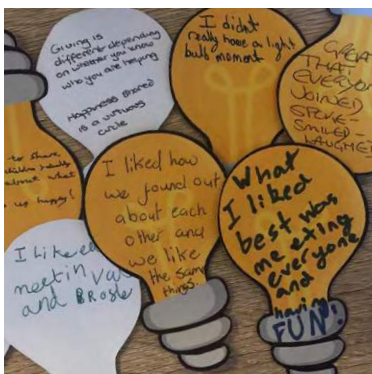 Giving is
different depending
on whether you know
who you are helping
Happiness shared
is a virtuous
circle
I didnt
really have a light
bulb moment
GREAT
THAT
EVERYONE
JOINED
SPOKE -
SMILED -
LAUGHED
to share,
really
about what
up happy!
I liked how
we found out
about each
other and
we like
the same
things.
What
I liked
best was
meeting
everyone
and
having
FUN!
I liked
meetin
and